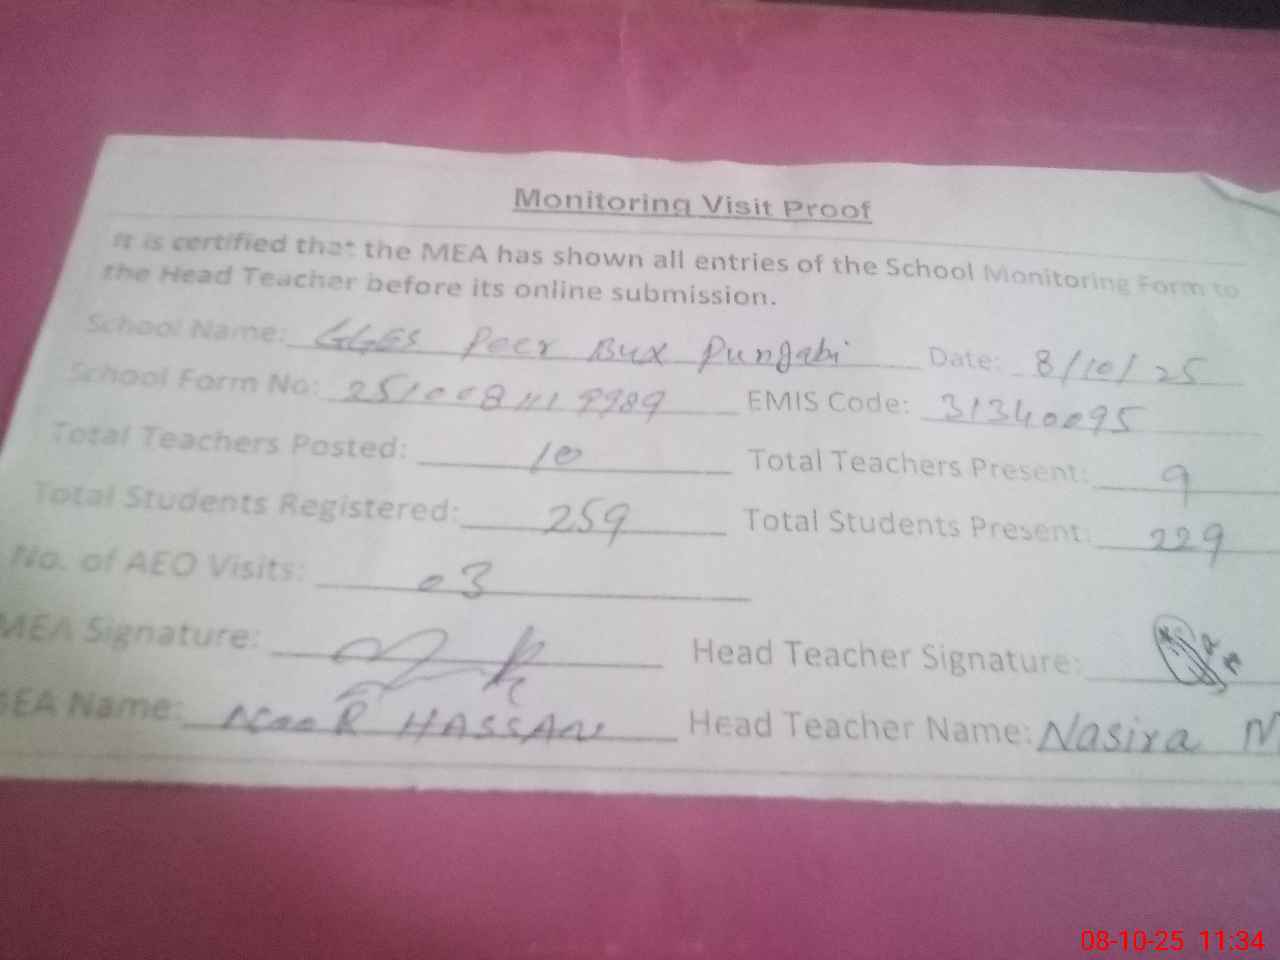 Monitoring Visit Proof
It is certified that the MEA has shown all entries of the School Monitoring Form to
the Head Teacher before its online submission.
School Name: GGES Peer Bux Punjabi Date: 8/10/25
School Form No: EMIS Code: 31340095
Total Teachers Posted: 10 Total Teachers Present: 9
Total Students Registered: 259 Total Students Present: 229
No. of AEO Visits: 03
MEA Signature: Head Teacher Signature:
MEA Name: NooR HASSAN Head Teacher Name: Nasira
08-10-25 11:34